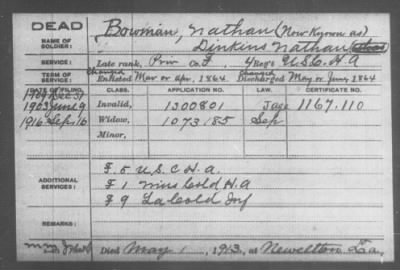 DEAD
NAME OF SOLDIER:
Bowman, Nathan (Now Known as)
Dinkins Nathan
SERVICE:
Late rank, Priv Co. F, 4 Reg't U.S.C.H.A
TERM OF SERVICE:
Enlisted Mar or Apr, 1864. Discharged May or June, 1864
DATE OF FILING.
CLASS.
APPLICATION NO.
LAW.
CERTIFICATE NO.
1904 Dec 31
1903 June 9
Invalid,
1300801
1167.110
1916 Sep 16
Widow,
1073185
Sep
Minor,
ADDITIONAL SERVICES:
F. 5 U.S.C.H.A.
F 1 Miss Cold H.A
F 9 La Cold Inf
REMARKS:
Died May 1, 1913, at Newellton La,